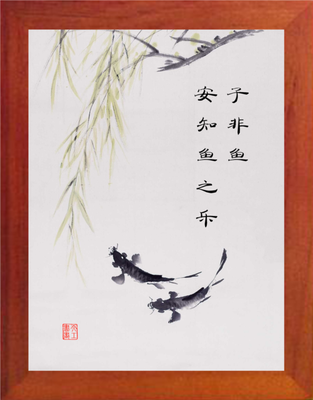 子非鱼
安知鱼之乐